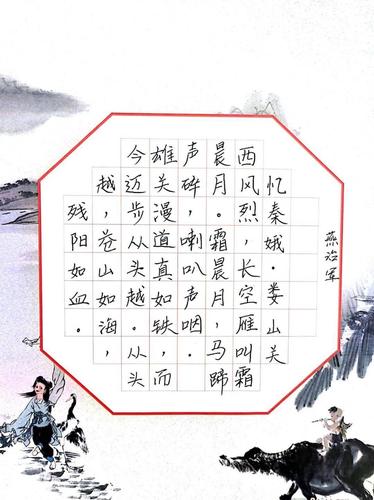 燕治军
忆秦娥·娄山关
西风烈，长空雁叫霜
晨月。霜晨月，马蹄
声碎，喇叭声咽。
雄关漫道真如铁，而
今迈步从头越。从头
越，苍山如海，
残阳如血。